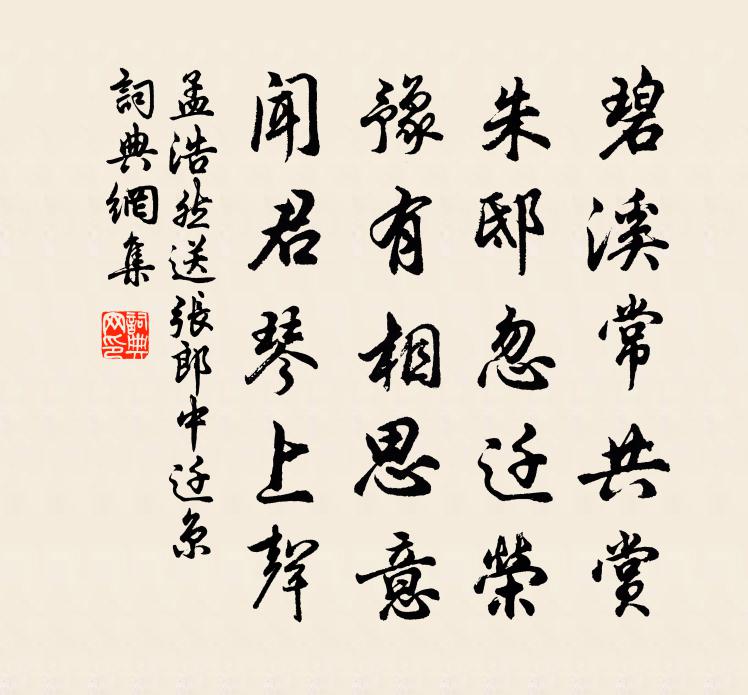 碧溪常共賞
朱邸忽迁榮
豫有相思意
聞君琴上聲
孟浩然送張郎中迁京
詞典網集
詞典网印